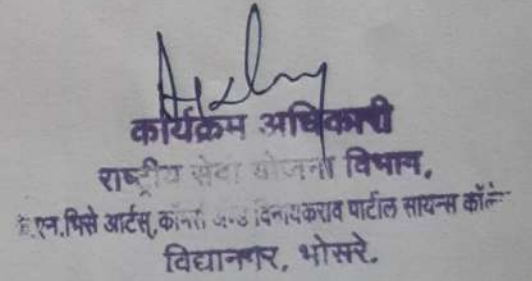 कार्यक्रम अधिकारी
राष्ट्रीय सेवा योजना विभाग,
के.एन.भिसे आर्टस्, कॉमर्स अन्ड विनायकराव पाटील सायन्स कॉलेज
विद्यानगर, भोसरे.